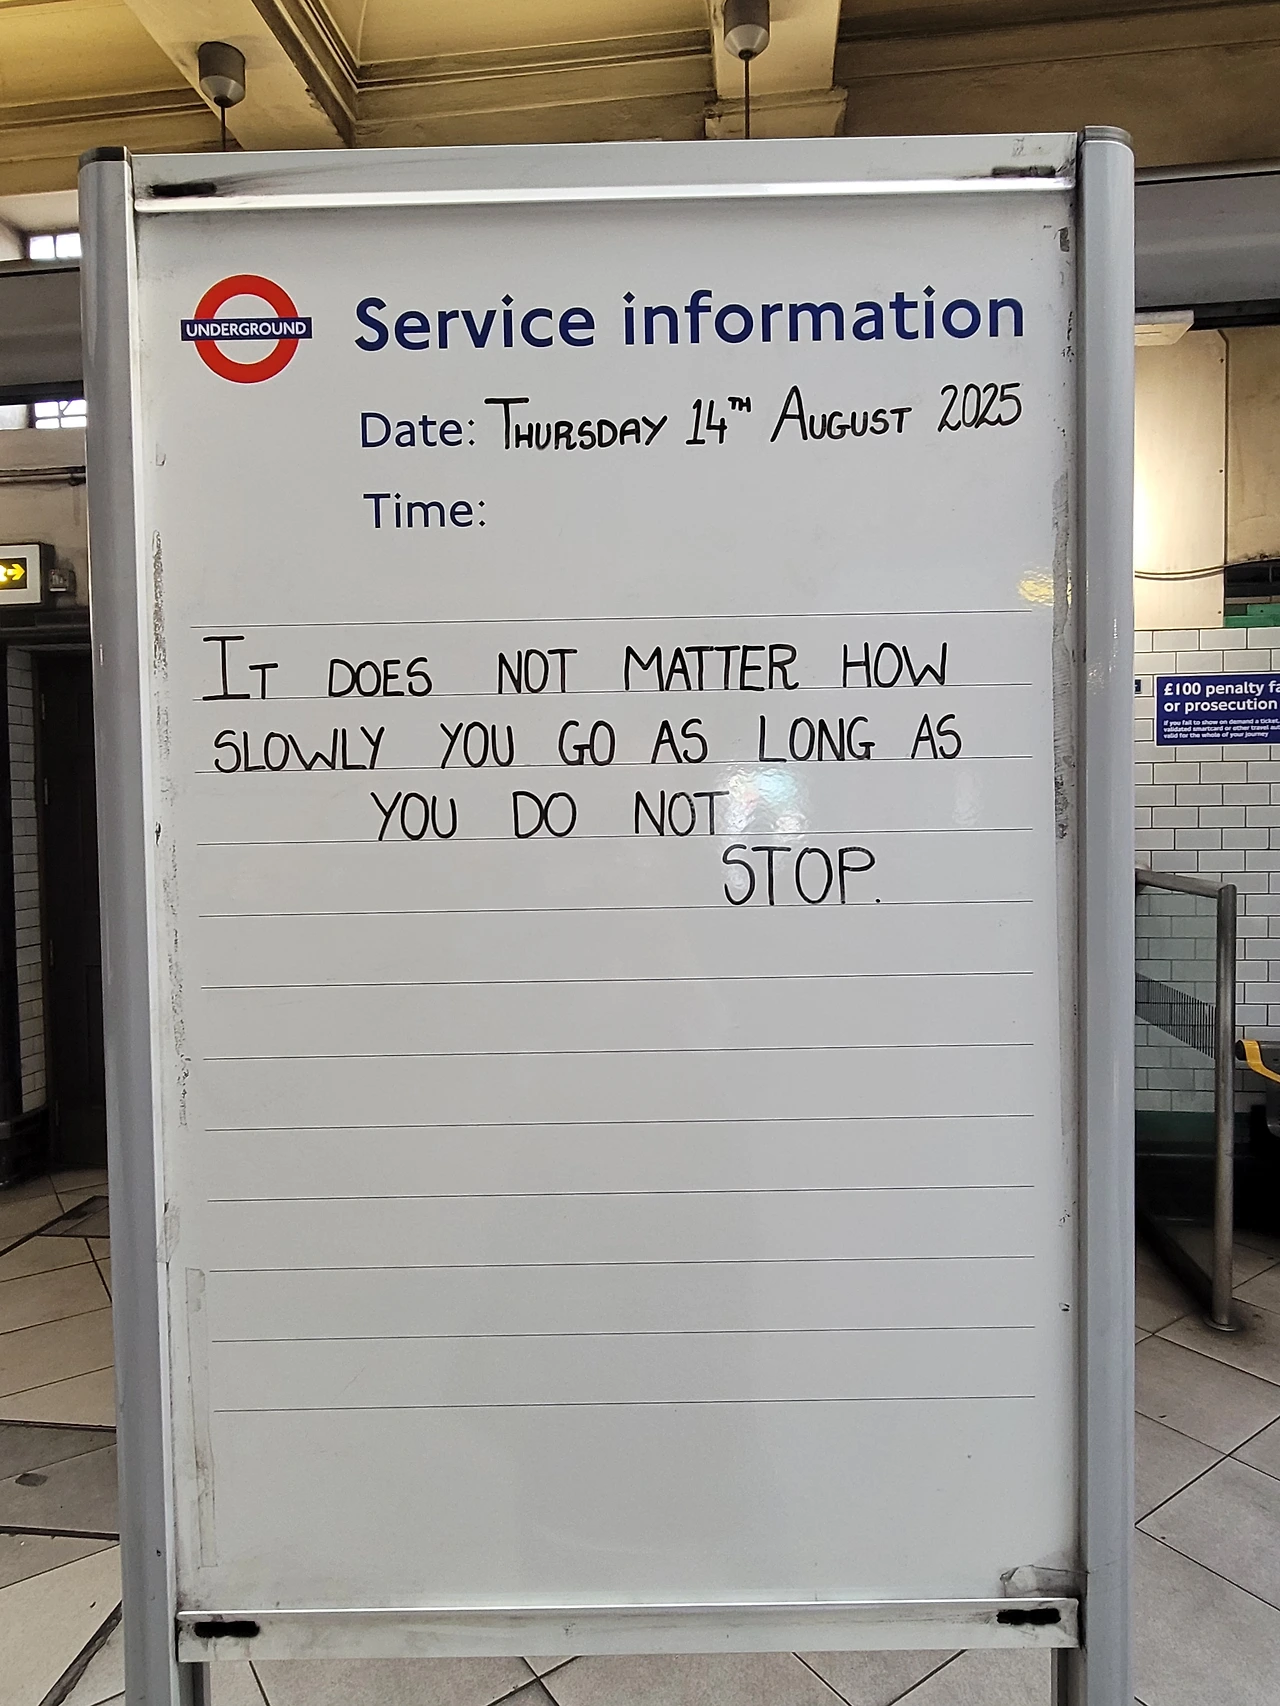 UNDERGROUND
Service information
Date: THURSDAY 14TH AUGUST 2025
Time:
IT DOES NOT MATTER HOW
SLOWLY YOU GO AS LONG AS
YOU DO NOT
STOP.
£100 penalty fa
or prosecution
If you fail to show on demand a ticket,
validated smartcard or other travel aut
valid for the whole of your journey